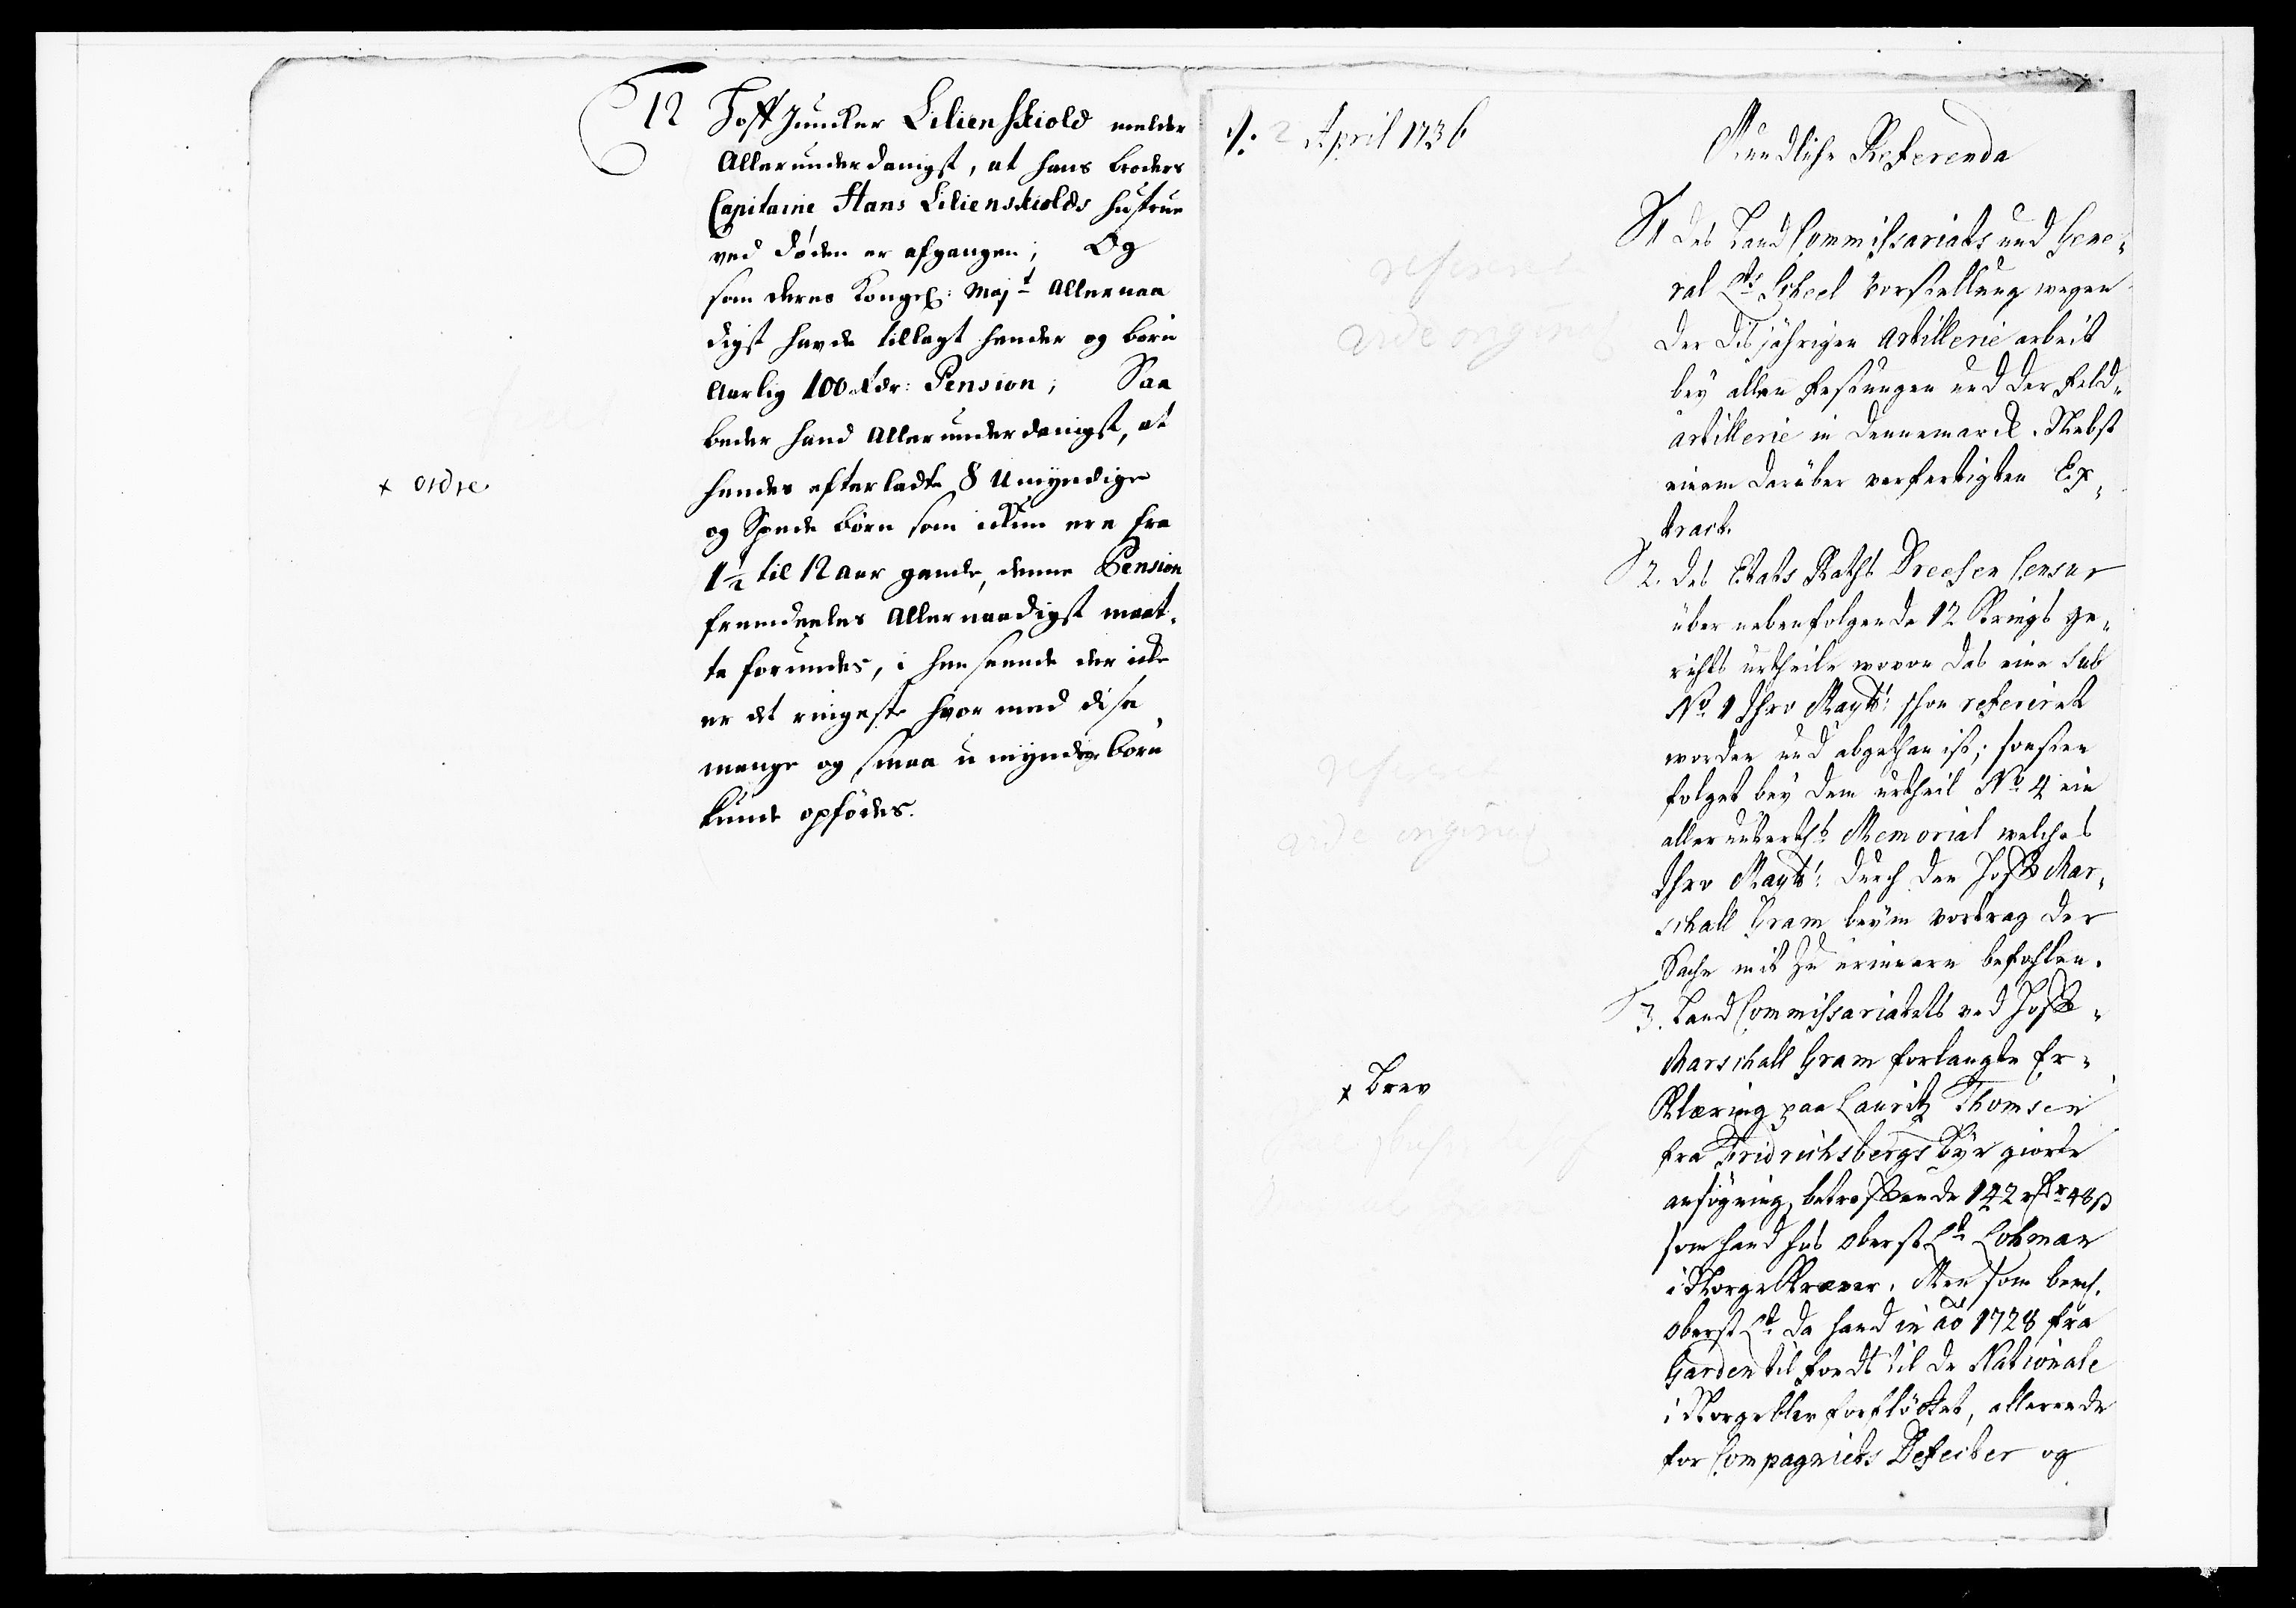 12 Hoff Juncker Lilienskiold melder
Allerunderdanigst, at hans broders
Capitaine Hans Lilienskiolds hustrue
ved døden er afgangen; Og
som deres Kongel: Majt Allernaa
digst hafde tillagt hender og børn
Aarlig 100 rdr: Pension; Saa
beder hand Allerunderdanigst, at
hendes efterladte 8 umyndige
og Spæde børn som ickun ere fra
1½ til 12 aar gamle, denne Pension
fremdeeles Allernaadigst maat-
te forundes, i henseende der icke
er det ringeste hvor med disse
mange og smaa umyndige børn
kunde opfødes.
x ordre
d: 2 April 1736
Mundliche Referenda
1 Des Land Commissariats und Gene-
ral Lts Scheel vorstellung wegen
der disjährigen artillerie arbeit
bey allen festungen und der feld-
artillerie in dennemarck. Nebst
einem darüber verfertigten Ex-
tract.
2. des Etats Raths Dreesen Censur
über nebenfolgende 12 Kriegs ge-
richts urtheile wovon das eine sub
No 1 Ihro Maytt: schon referiret
worden und abgethan ist; sonsten
folget bey dem urtheil No 4 ein
allerunterth. Memorial welches
Ihro Maytt: durch den Hoff Mar-
schall Gram beym vortrag der
Sache mit zu erinnern befohlen.
3. Land Commissariatets ved Hoff-
Marschall Gram forlangte Er-
klæring paa Lauritz Thomsen
fra Fridrichsbergs Bye giorte
ansøgning, betreffende 142 rdr 48 ß
som hand hos oberst Lt Lohman
i Norge kræver. Men som bem.
oberst Lt. da hand in ao 1728 fra
Garden til fods til de Nationale
i Norge blev forflöttet, allereede
for Compagniets Defecter og
x brev